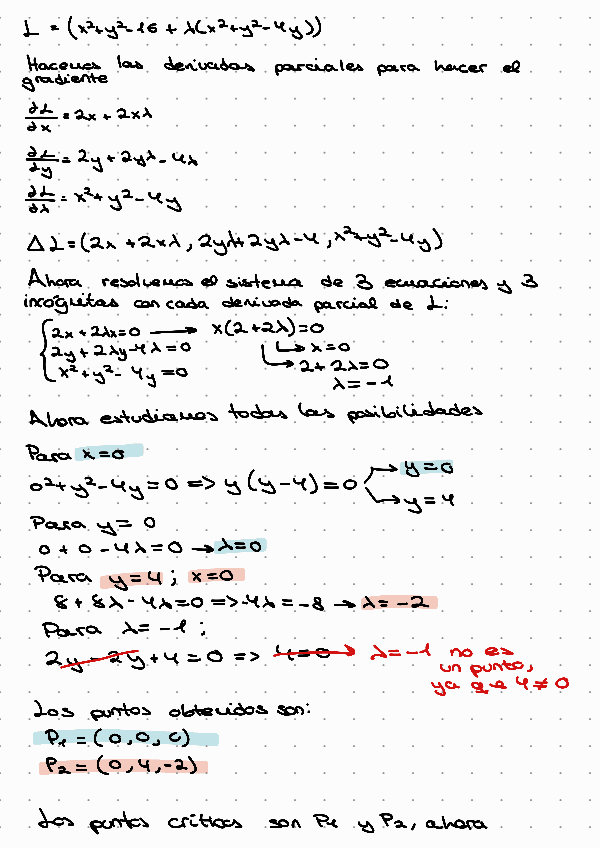 L = (x²+y²-16 + λ(x²+y²-4y))
Hacemos las derivadas parciales para hacer el
gradiente
∂L/∂x = 2x + 2xλ
∂L/∂y = 2y + 2yλ - 4λ
∂L/∂λ = x²+y²-4y
Δ L=(2x +2xλ, 2y+2yλ-4, x²+y²-4y)
Ahora resolvemos el sistema de 3 ecuaciones y 3
incógnitas con cada derivada parcial de L:
2x + 2λx=0 → x(2+2λ)=0
2y + 2λy-4λ=0 → x=0
x²+y²-4y=0 → 2+2λ=0
λ=-1
Ahora estudiamos todas las posibilidades
Para x=0
0²+y²-4y=0 => y(y-4)=0 → y=0
→ y=4
Para y=0
0+0-4λ=0 → λ=0
Para y=4; x=0
8+8λ-4λ=0 => 4λ=-8 → λ=-2
Para λ=-1;
2y-2y+4=0 => 4=0 → λ=-1 no es
un punto,
ya que 4≠0
Los puntos obtenidos son:
P₁ = (0,0,0)
P₂ = (0,4,-2)
Los puntos críticos son P₁ y P₂, ahora